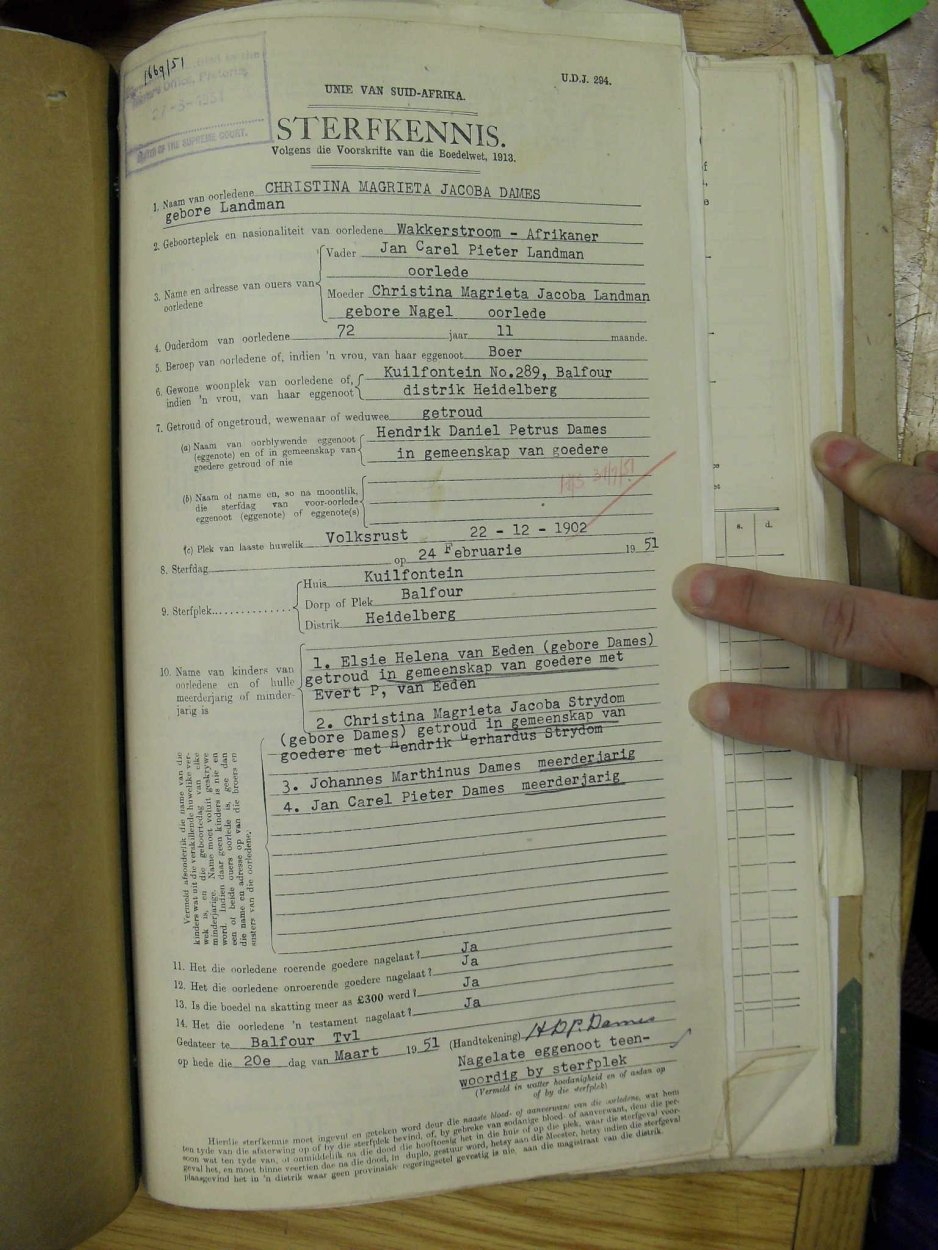 1669/51
MASTER OF THE SUPREME COURT.
U.D.J. 294.
UNIE VAN SUID-AFRIKA.
STERFKENNIS.
Volgens die Voorskrifte van die Boedelwet, 1913.
1. Naam van oorledene CHRISTINA MAGRIETA JACOBA DAMES
gebore Landman
2. Geboorteplek en nasionaliteit van oorledene Wakkerstroom - Afrikaner
3. Name en adresse van ouers van oorledene
Vader Jan Carel Pieter Landman
oorlede
Moeder Christina Magrieta Jacoba Landman
gebore Nagel oorlede
4. Ouderdom van oorledene 72 jaar 11 maande.
5. Beroep van oorledene of, indien 'n vrou, van haar eggenoot Boer
6. Gewone woonplek van oorledene of, Kuilfontein No.289, Balfour
indien 'n vrou, van haar eggenoot distrik Heidelberg
7. Getroud of ongetroud, wewenaar of weduwee getroud
(a) Naam van oorblywende eggenoot Hendrik Daniel Petrus Dames
(eggenote) en of in gemeenskap van in gemeenskap van goedere
goedere getroud of nie
(b) Naam of name en, so na moontlik,
die sterfdag van voor-oorlede
eggenoot (eggenote) of eggenote(s)
(c) Plek van laaste huwelik Volksrust 22 - 12 - 1902
8. Sterfdag op 24 Februarie 19 51
9. Sterfplek
Huis Kuilfontein
Dorp of Plek Balfour
Distrik Heidelberg
10. Name van kinders van
oorledene en of hulle
meerderjarig of minder-
jarig is
1. Elsie Helena van Eeden (gebore Dames)
getroud in gemeenskap van goedere met
Evert P, van Eeden
2. Christina Magrieta Jacoba Strydom
(gebore Dames) getroud in gemeenskap van
goedere met Hendrik Gerhardus Strydom
3. Johannes Marthinus Dames meerderjarig
4. Jan Carel Pieter Dames meerderjarig
Vermeld afsonderlik die name van die
kinders wat uit die verskillende huwelike ver-
wek is, en die geboortedag van elke
minderjarige. Name moet voluit geskrywe
word. Indien daar geen kinders is nie en
een of beide ouers oorlede is, gee dan
die name en adresse op van die broers en
susters van die oorledene.
11. Het die oorledene roerende goedere nagelaat? Ja
12. Het die oorledene onroerende goedere nagelaat? Ja
13. Is die boedel na skatting meer as £300 werd? Ja
14. Het die oorledene 'n testament nagelaat? Ja
Gedateer te Balfour Tvl
op hede die 20e dag van Maart 19 51 (Handtekening) H D P. Dames
Nagelate eggenoot teen-
woordig by sterfplek
(Vermeld in watter hoedanigheid en of aldan op
of by die sterfplek)
Hierdie sterfkennis moet ingevul en geteken word deur die naaste bloed- of aanverwant van die oorledene, wat hom
ten tyde van die afsterwing op of by die sterfplek bevind, of, by gebreke van sodanige bloed- of aanverwant, deur die per-
soon wat ten tyde van, of onmiddellik na die dood die hooftoesig het in die huis of op die plek, waar die sterfgeval voor-
geval het, en moet binne veertien dae na die dood, in duplo, gestuur word, hetsy aan die Meester, hetsy indien die sterfgeval
plaasgevind het in 'n distrik waar geen provinsiale regeringsetel gevestig is nie, aan die magistraat van die distrik.
s. d.